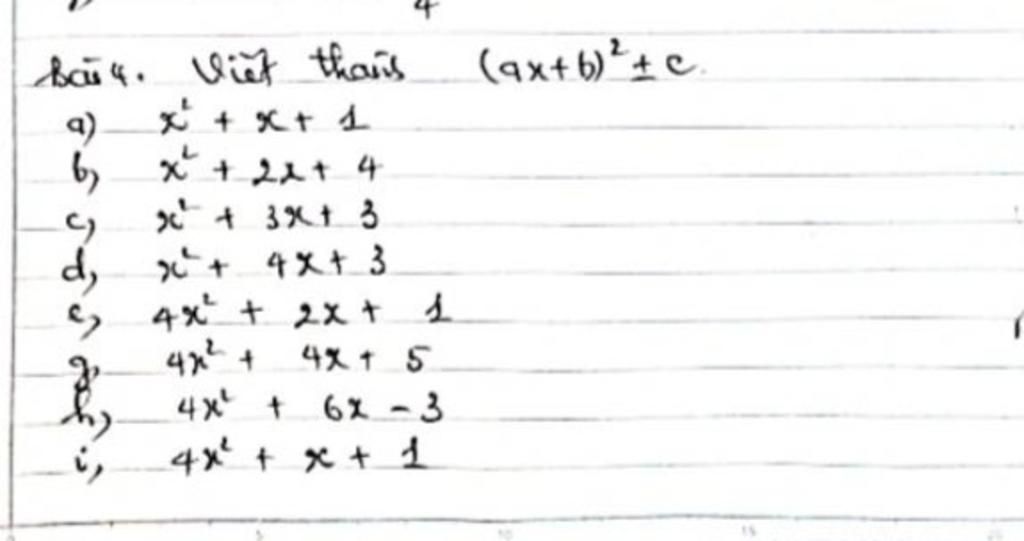 4
Bài 4. Viết thành (ax+b)² ± c.
a) x² + x + 1
b, x² + 2x + 4
c, x² + 3x + 3
d, x² + 4x + 3
e, 4x² + 2x + 1
g, 4x² + 4x + 5
h, 4x² + 6x - 3
i, 4x² + x + 1
5 10 15 20